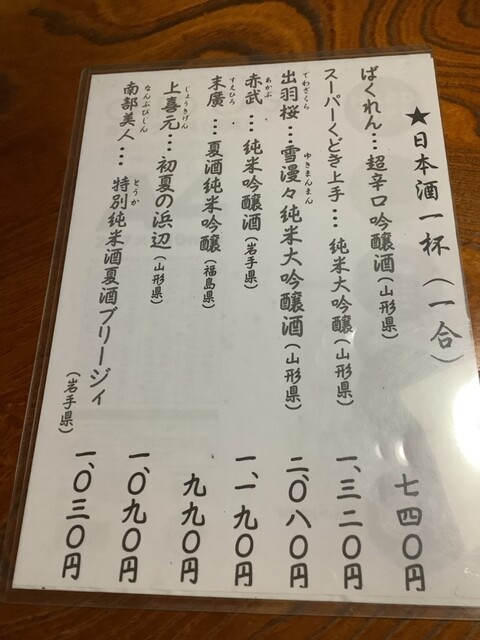 ★日本酒一杯(一合)
ばくれん…超辛口吟醸酒(山形県) 七四〇円
スーパーくどき上手…純米大吟醸(山形県) 一、三二〇円
でわざくら ゆきまんまん
出羽桜…雪漫々純米大吟醸酒(山形県) 二、〇八〇円
あかぶ
赤武…純米吟醸酒(岩手県) 一、一九〇円
すえひろ
末廣…夏酒純米吟醸(福島県) 九九〇円
じょうきげん
上喜元…初夏の浜辺(山形県) 一、〇九〇円
なんぶびじん とうか
南部美人…特別純米酒夏酒ブリージィ(岩手県) 一、〇三〇円